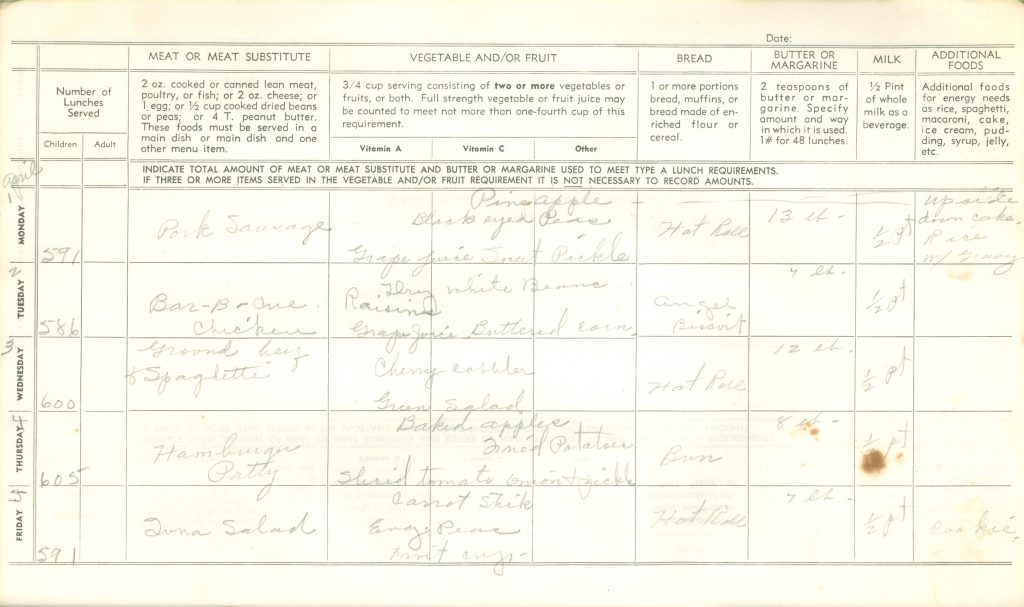 Date:
MEAT OR MEAT SUBSTITUTE
VEGETABLE AND/OR FRUIT
BREAD
BUTTER OR
MARGARINE
MILK
ADDITIONAL
FOODS
Number of
Lunches
Served
Children
Adult
2 oz. cooked or canned lean meat,
poultry, or fish; or 2 oz. cheese; or
1 egg; or ½ cup cooked dried beans
or peas; or 4 T. peanut butter.
These foods must be served in a
main dish or main dish and one
other menu item.
3/4 cup serving consisting of two or more vegetables or
fruits, or both. Full strength vegetable or fruit juice may
be counted to meet not more than one-fourth cup of this
requirement.
Vitamin A
Vitamin C
Other
1 or more portions
bread, muffins, or
bread made of en-
riched flour or
cereal.
2 teaspoons of
butter or mar-
garine. Specify
amount and way
in which it is used.
1# for 48 lunches.
½ Pint
of whole
milk as a
beverage.
Additional foods
for energy needs
as rice, spaghetti,
macaroni, cake,
ice cream, pud-
ding, syrup, jelly,
etc.
INDICATE TOTAL AMOUNT OF MEAT OR MEAT SUBSTITUTE AND BUTTER OR MARGARINE USED TO MEET TYPE A LUNCH REQUIREMENTS.
IF THREE OR MORE ITEMS SERVED IN THE VEGETABLE AND/OR FRUIT REQUIREMENT IT IS NOT NECESSARY TO RECORD AMOUNTS.
April
1
MONDAY
591
Pork Sausage
Pineapple
Black eyed Peas
Grape juice
Pickle
Hot Roll
13 lb -
½ pt
upside
down cake
Rice
w/ Gravy
2
TUESDAY
586
Bar-B-Que
Chicken
Raisins
Dry white Beans
Grape juice Buttered corn
Angel
Biscuit
7 lb.
½ pt
3
WEDNESDAY
600
Ground beef
& Spaghetti
Cherry cobbler
Green Salad
Hot Roll
12 lb.
½ pt
4
THURSDAY
605
Hamburger
Patty
Baked apples
Potatoes
Sliced tomato onion & pickle
Bun
8 lb -
½ pt
FRIDAY
591
Tuna Salad
Carrot Stick
Eng. Peas
Fruit cup -
Hot Roll
7 lb -
½ pt
Cookie